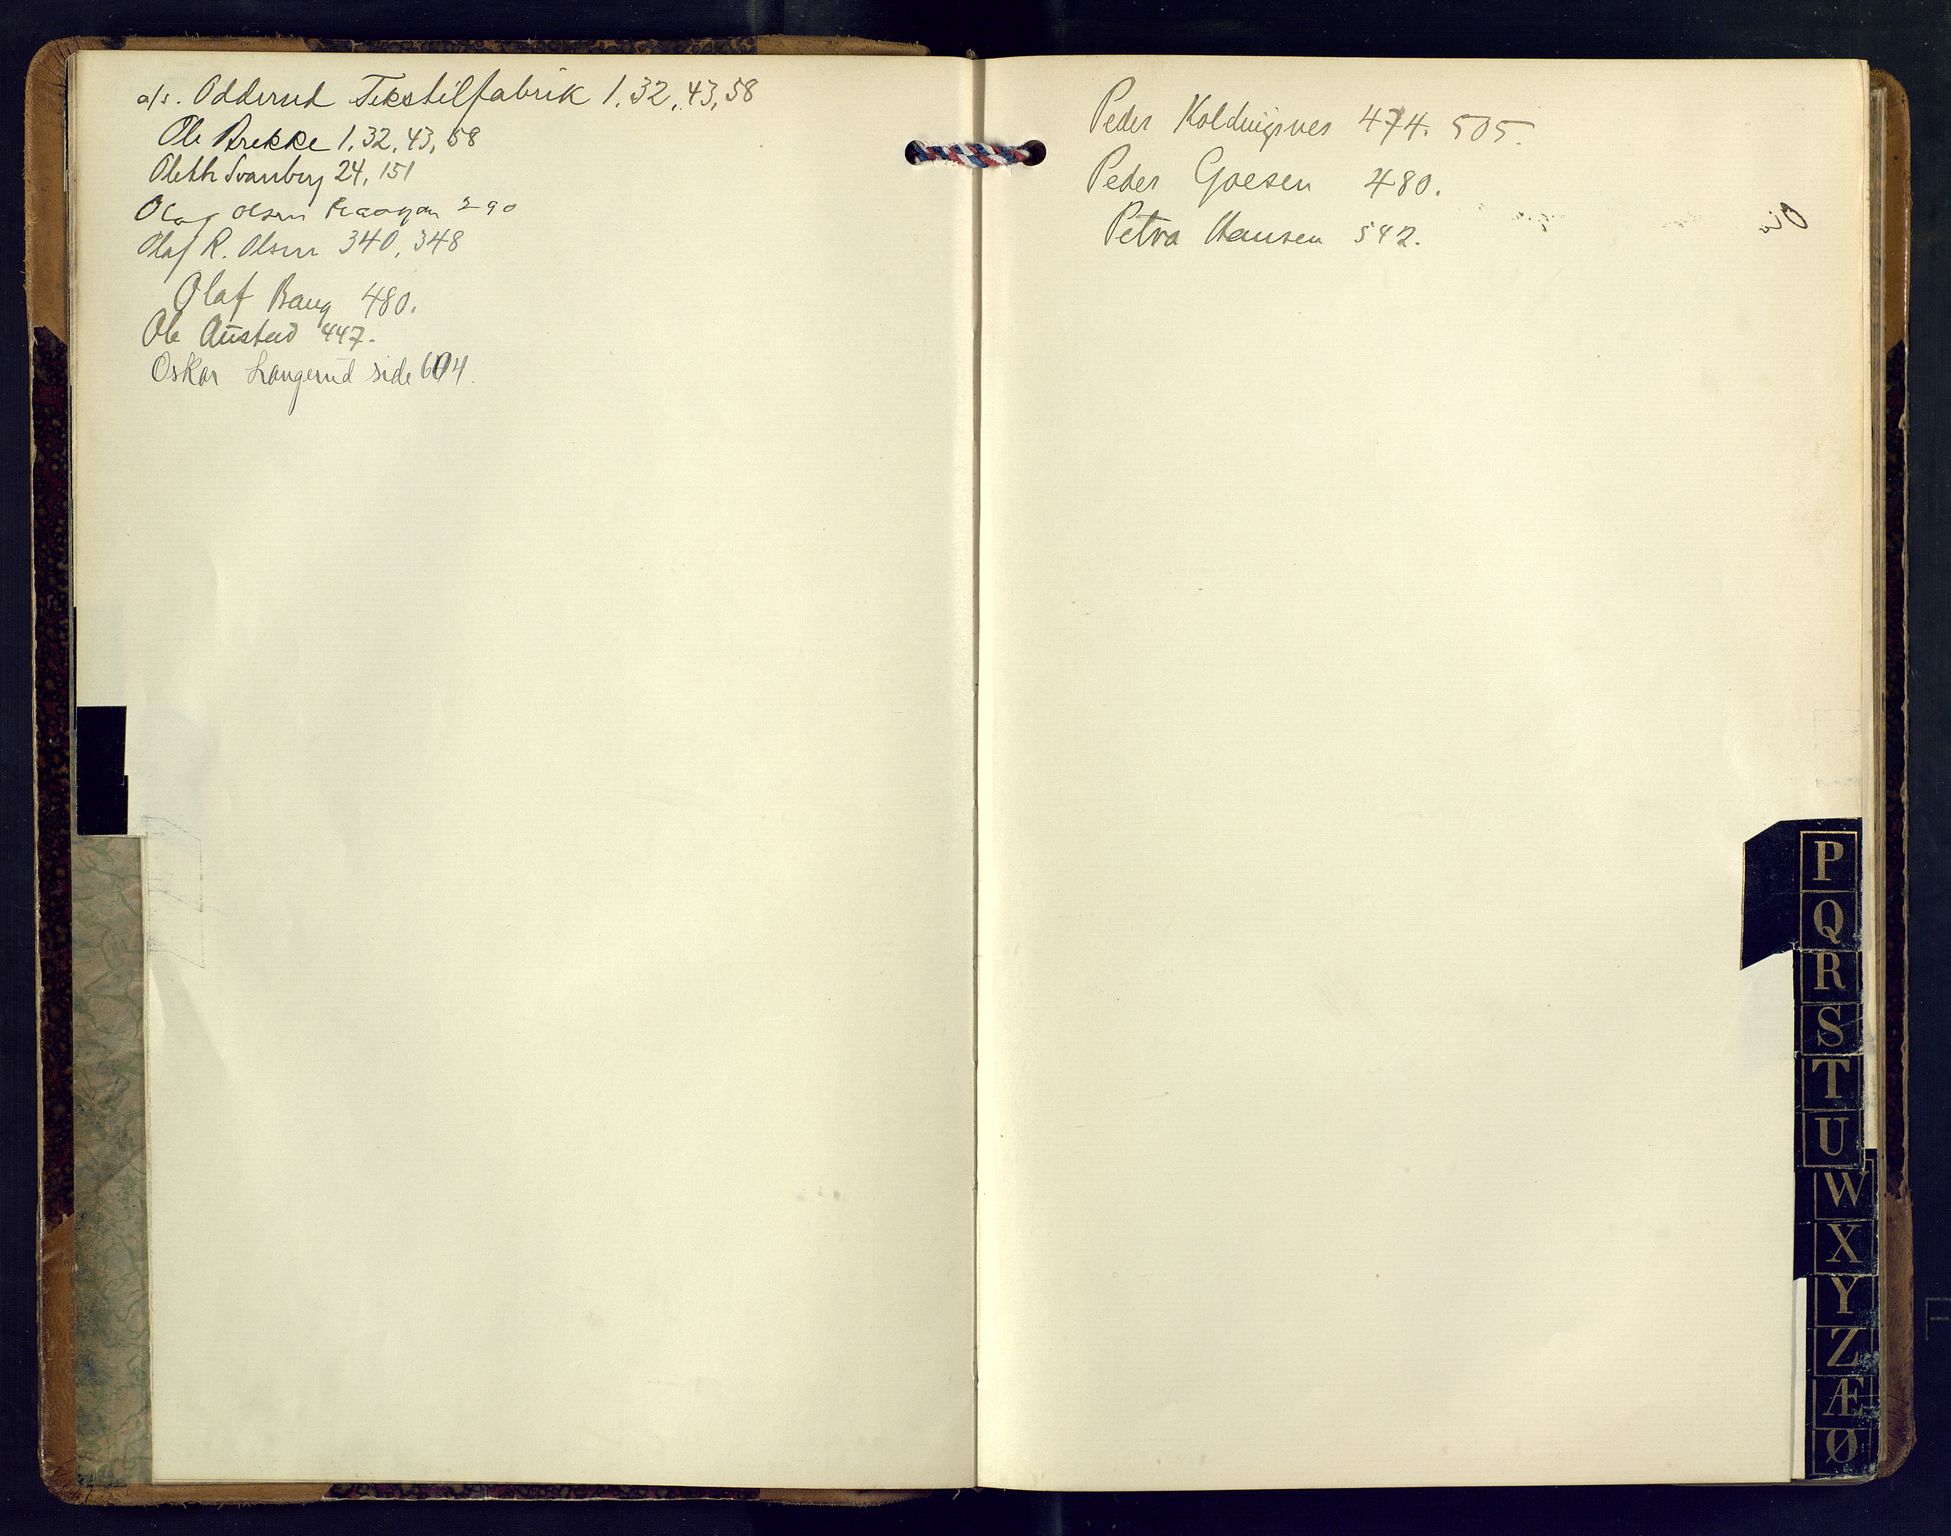 a/s. Odderud Tekstilfabrik 1, 32, 43, 58
Ole Brekke 1, 32, 43, 58
Oleth Svanberg 24, 151
Olaf Olsen 290
Olaf R. Olsen 340, 348
Olaf Baug 480.
Ole Austad 447.
Oskar Langerud side 604.
Peder Koldingsnes 474. 505.
Peder Goesen 480.
Petra Hansen 542.
P
Q
R
S
T
U
W
X
Y
Z
Æ
Ø